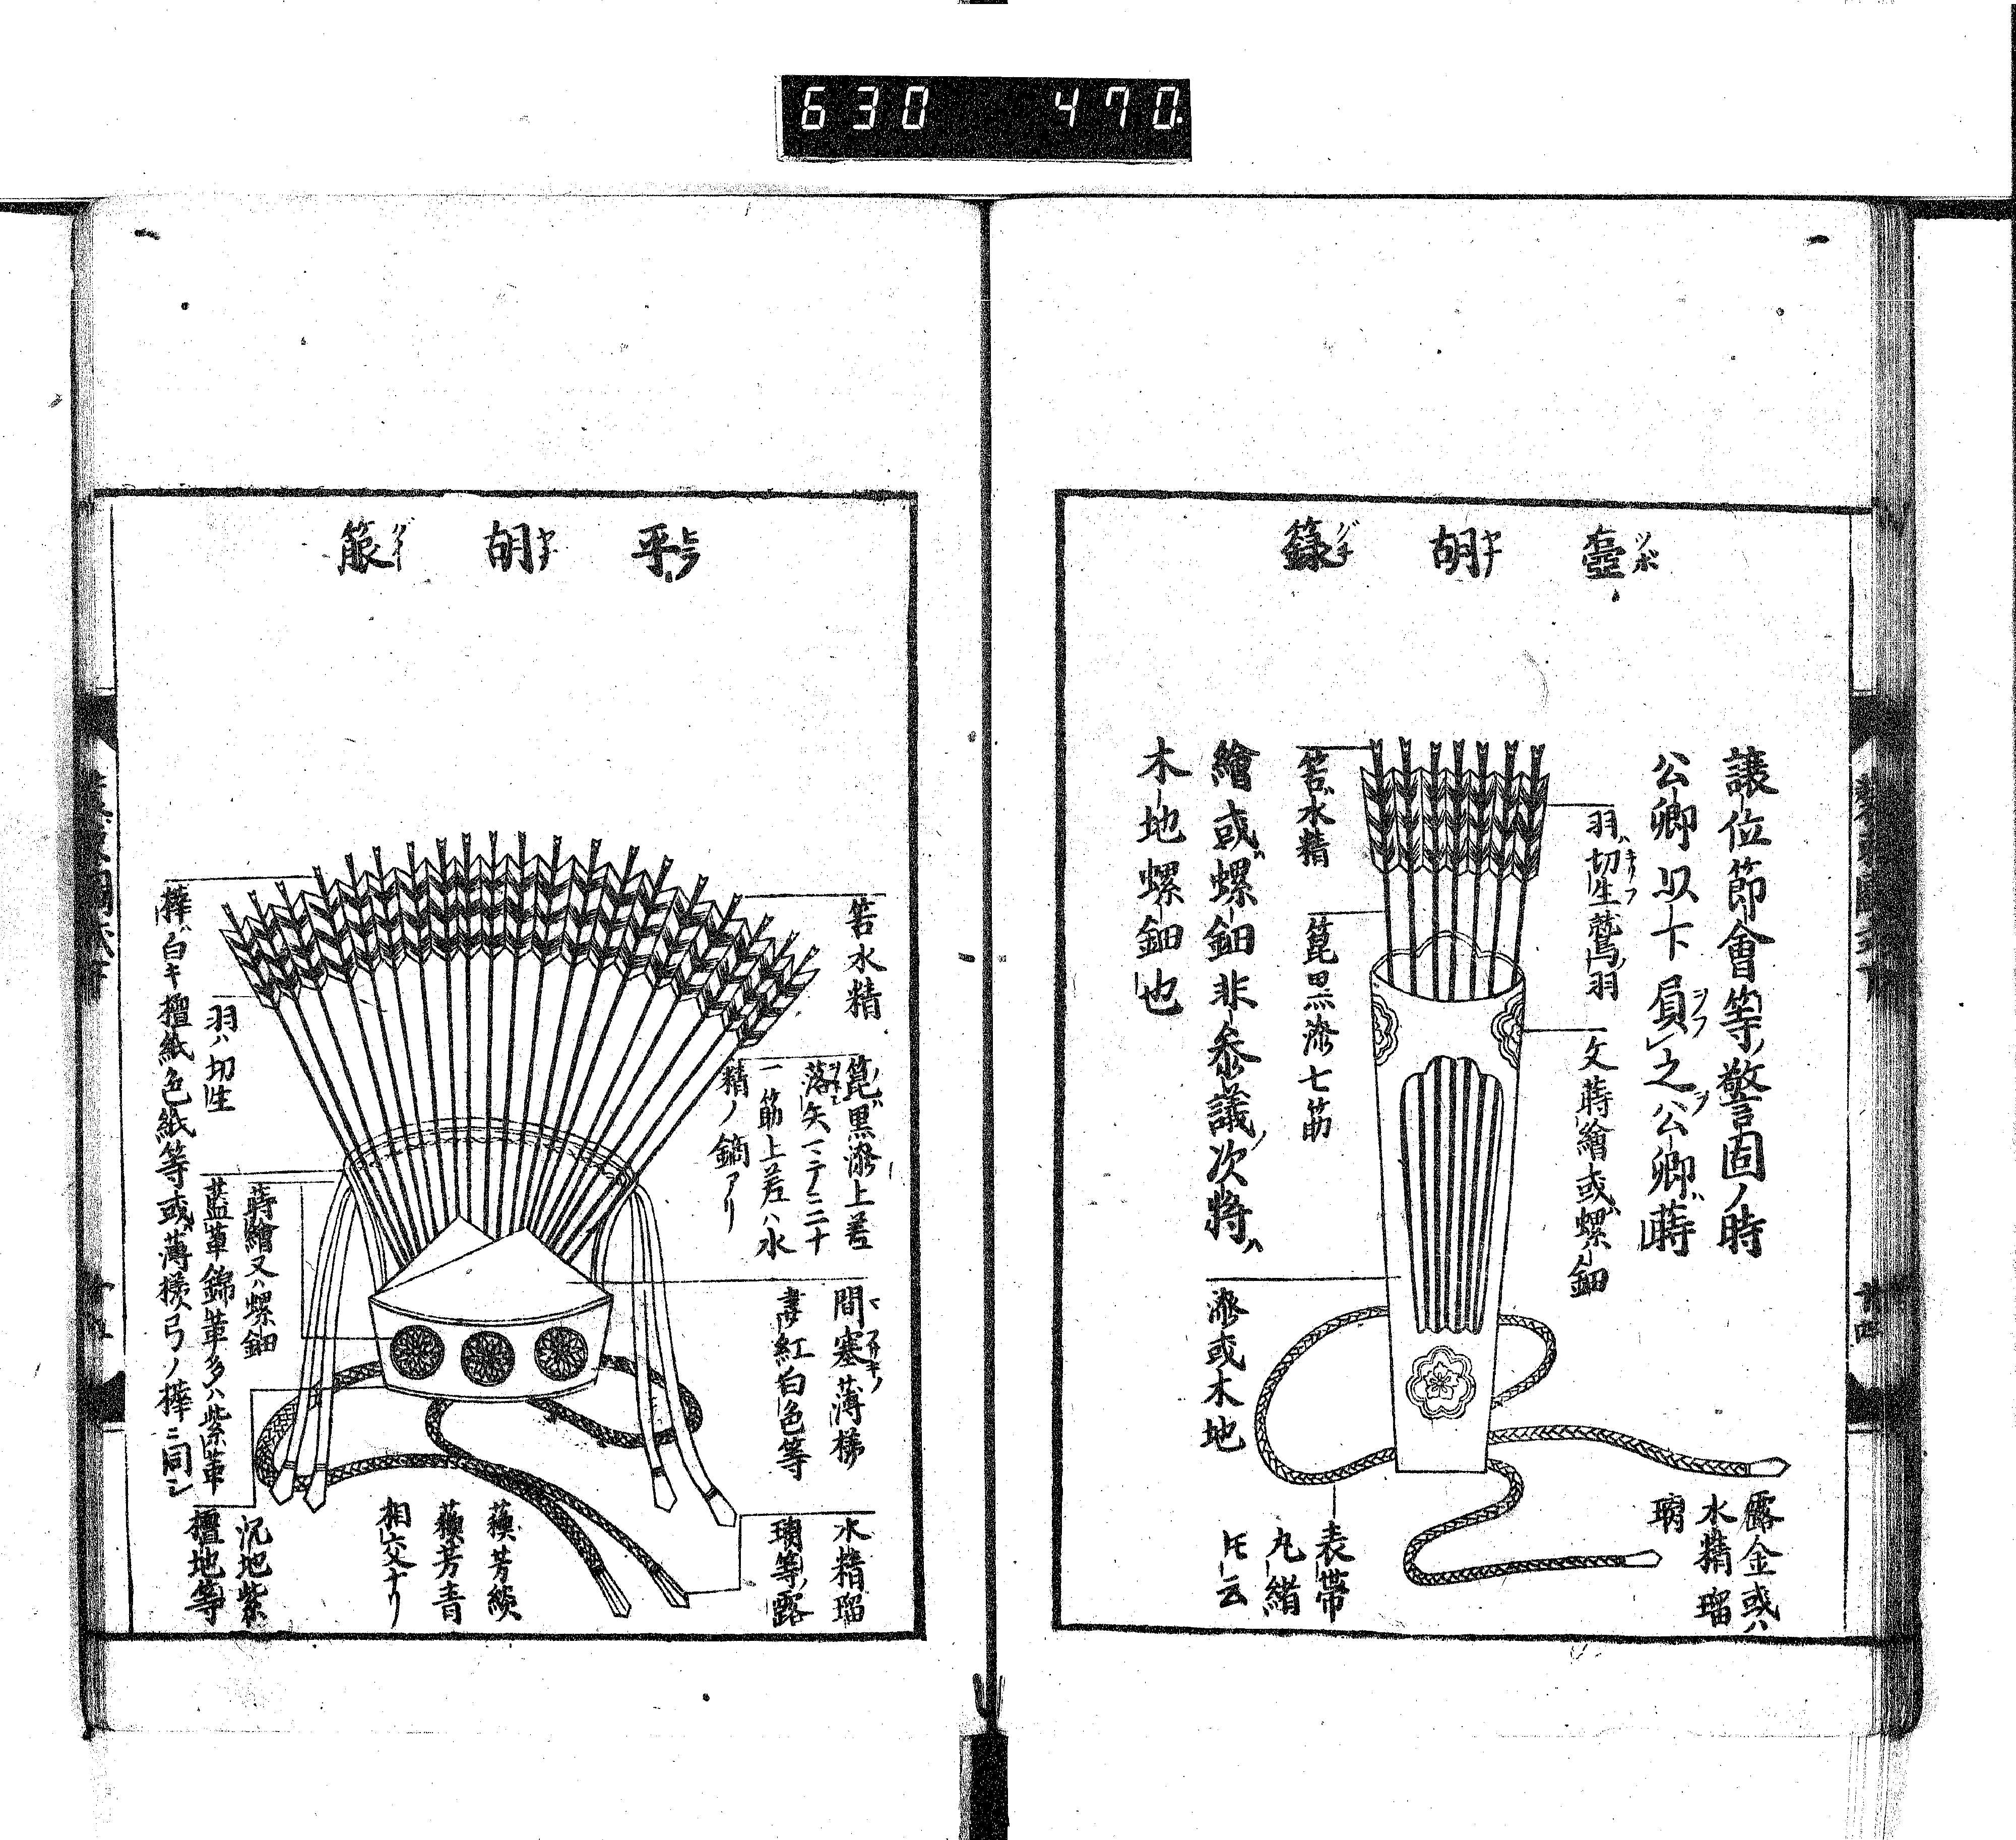 630 470.
壺ツボ 胡ヤナ 籙グイ
譲位節會等ノ警固ノ時
公卿以下負之公卿ハ蒔
羽ハ切生キリフ鷲ノ羽
文蒔繪或ハ螺鈿
筈水精
箆黒漆七筋
繪或ハ螺鈿非参議ノ次將ハ
木地螺鈿也
漆或木地
露金或ハ
水精瑠
璃
表帯
丸緒
トモ云
十四
平ヒラ 胡ヤナ 箙グイ
筈水精
箆ハ黒漆上差
落矢マテ二十
一筋上差ハ水
精ノ鏑アリ
間塞ノ薄様
畫紅白色等
水精瑠
璃等ノ露
蘓芳緂
蘓芳青
相交ナリ
樺ハ白キ檀紙色紙等或ハ薄様弓ノ樺ニ同シ
羽ハ切生
蒔繪又ハ螺鈿
藍革錦革多ハ紫革
沉地紫
檀地等